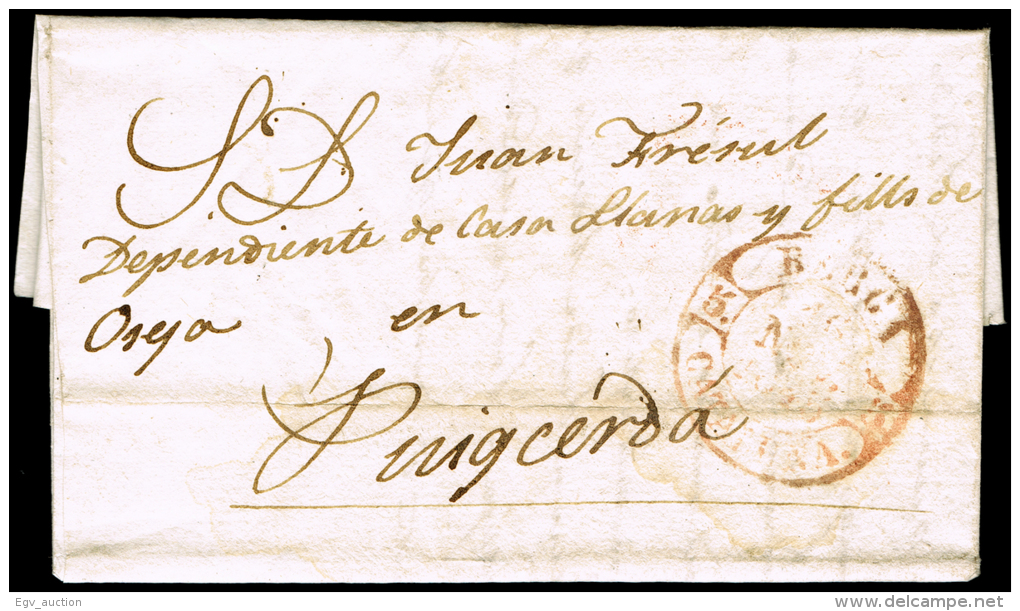 S D Juan Frésul
Dependiente de Casa Llanas y fills de
Oseja en
Puigcerdá
5.
Egv_auction
delcampe.net